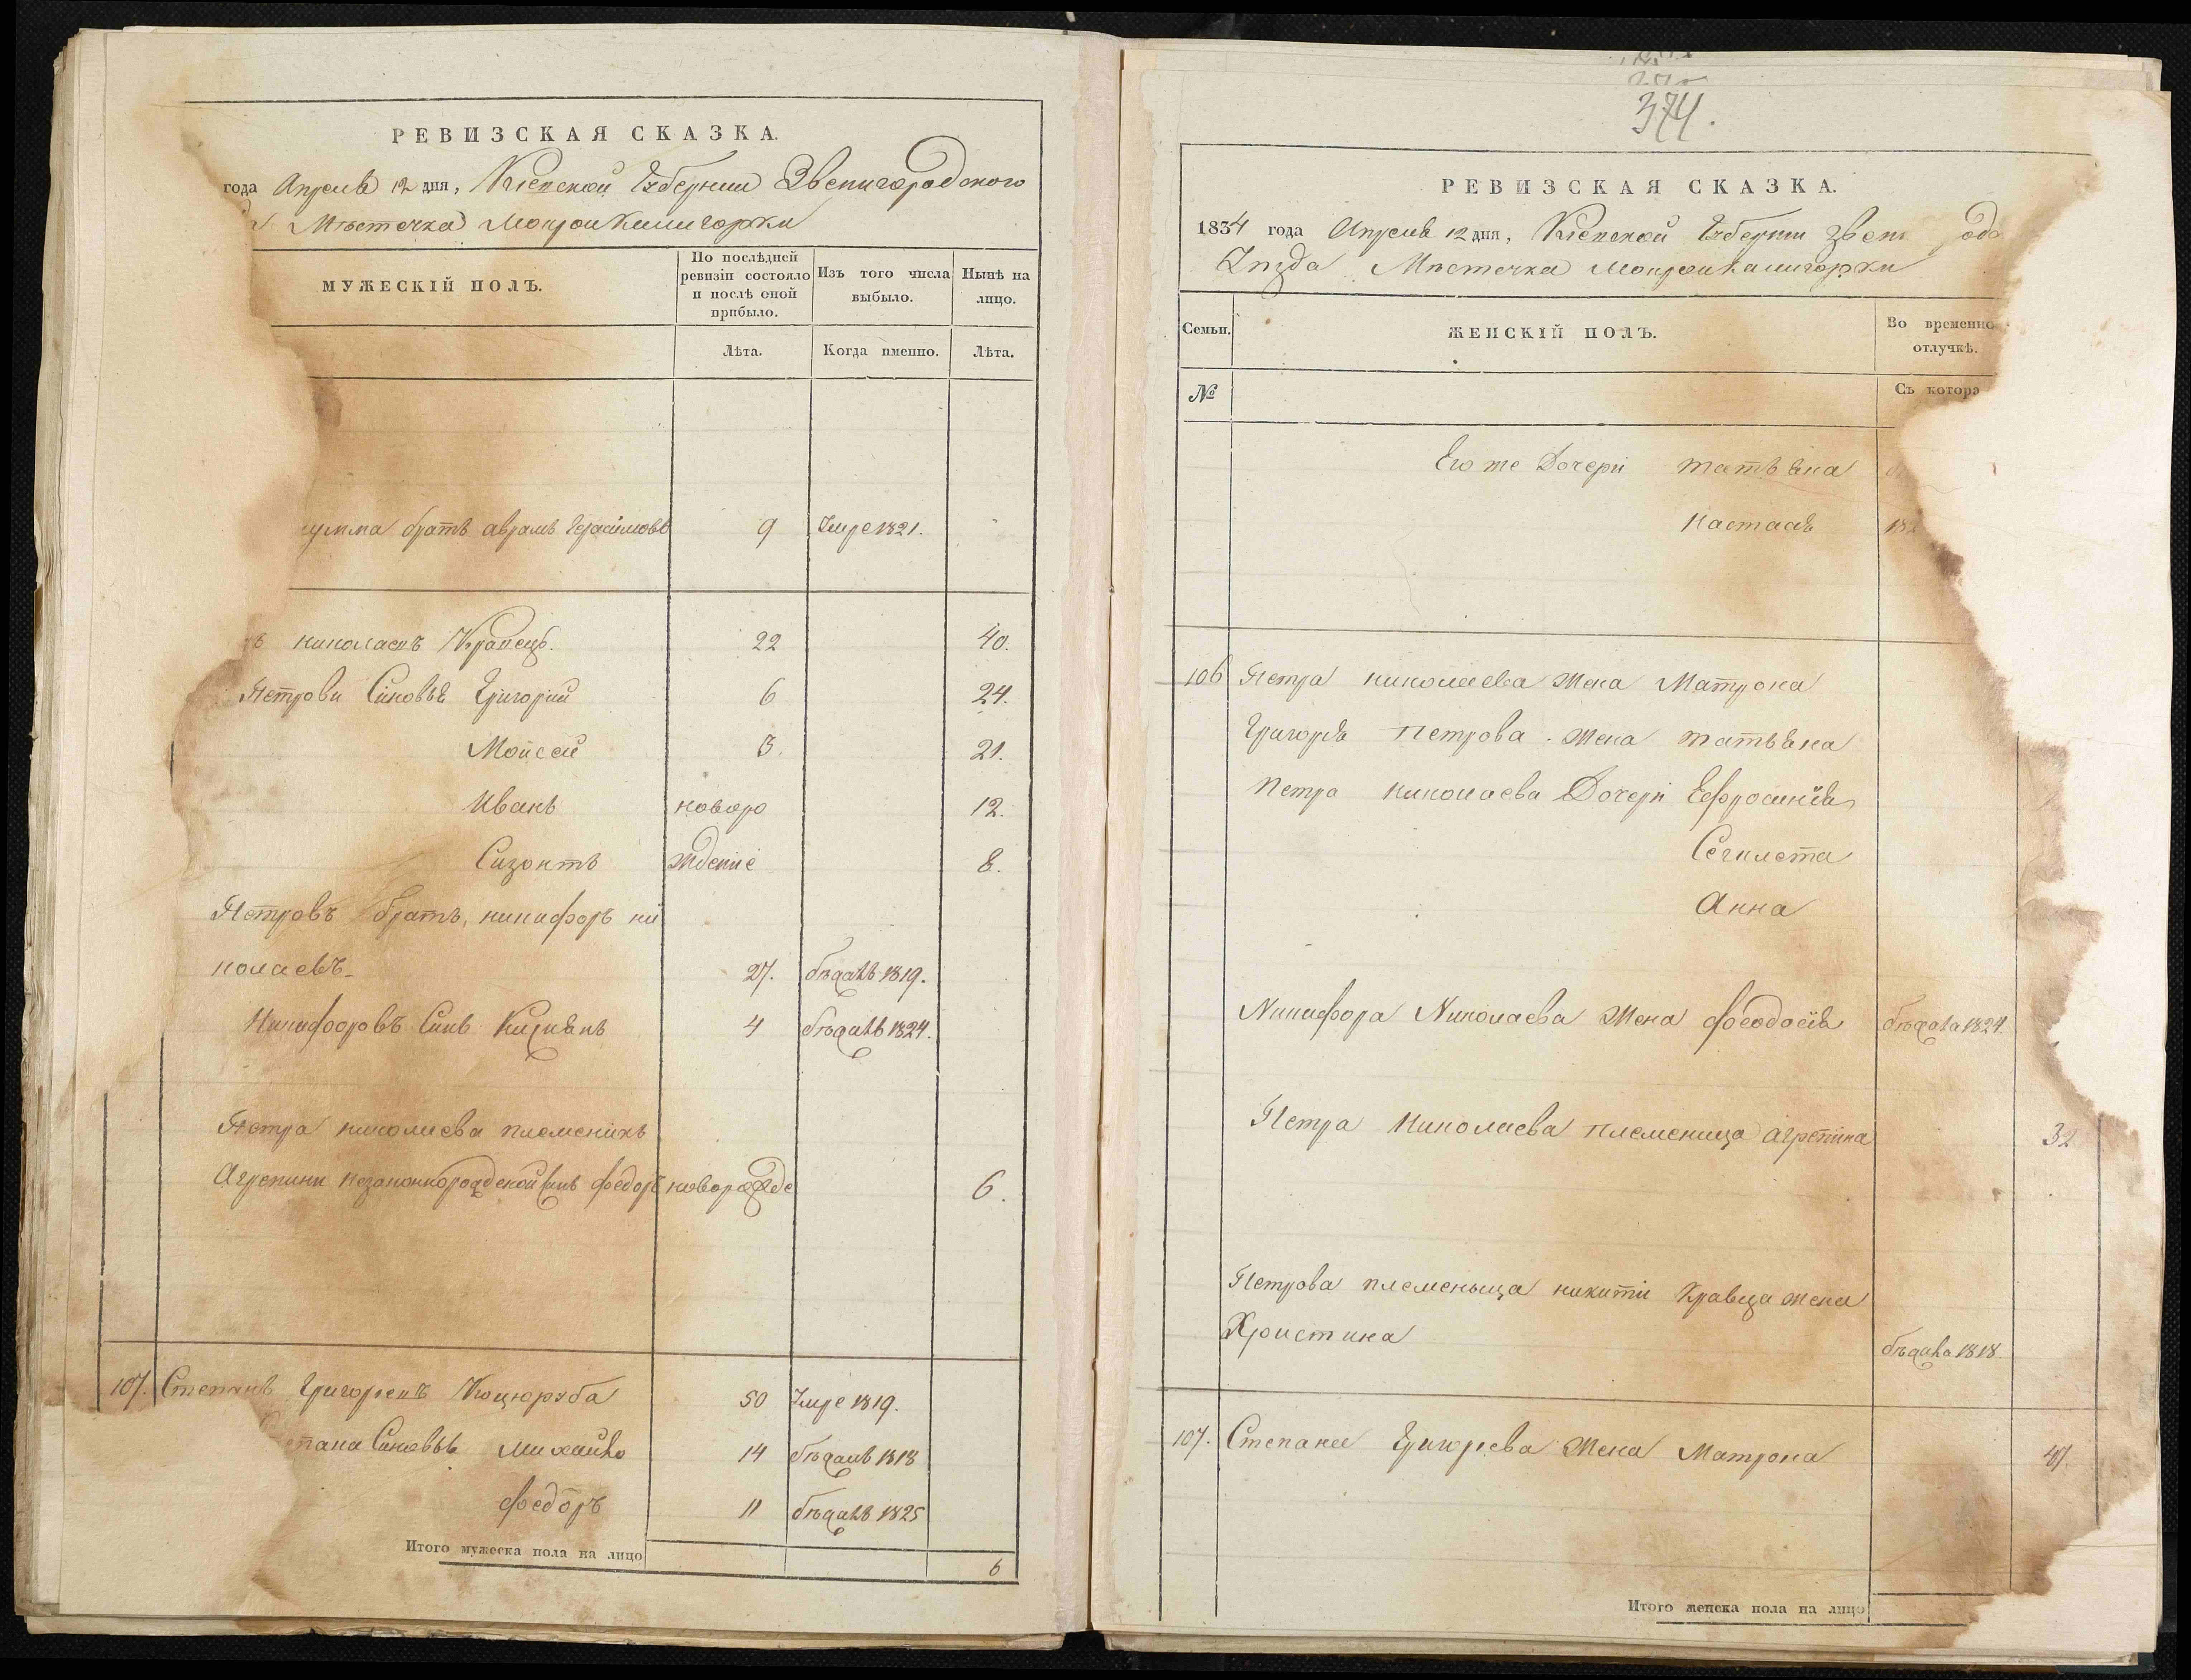 РЕВИЗСКАЯ СКАЗКА.
года Апреля 12 дня, Кіевской Губерніи Звенигородского
Мѣстечка Мокройкалигорки
МУЖЕСКІЙ ПОЛЪ.
По послѣдней ревизіи состояло и послѣ оной прибыло.
Изъ того числа выбыло.
Нынѣ на лицо.
Лѣта.
Когда именно.
Лѣта.
братъ аврамъ Герасимовъ 9 Умре 1821.
николаевъ Кравецъ. 22 40.
Петрови Синовья Григорий 6 24.
Мойсей 3. 21.
Иванъ новоро 12.
Сизонтъ ждение 8.
Петровъ братъ, никифоръ ни
колаевъ 27. бѣжалъ 1819.
Никифоровъ Синъ Кирианъ 4 бѣжалъ 1824.
Петра николаева племеникъ
Агрепини незаконнорожденой синъ федоръ новорожде 6.
107. Степанъ Григориевъ Коцюрба 50 Умре 1819.
Синовья михайло 14 бѣжалъ 1818
федоръ 11 бѣжалъ 1825
Итого мужеска пола на лицо 6
374.
РЕВИЗСКАЯ СКАЗКА.
1834 года Апреля 12 дня, Кіевской Губернии Звени
Уѣзда Мѣстечка Мокройкалигорки
Семьи.
ЖЕНСКІЙ ПОЛЪ.
Во временно
отлучкѣ.
№
Съ котора
Его же Дочери татьяна
Настася 182
106 Петра николаева жена Матрона
Григорія Петрова жена татьяна
Петра николаева Дочери Ефросинія
Анна
Никифора Николаева жена феодосія бѣжала 1824.
Петра Николаева племеница агрепина 32
Петрова племеныца никити Кравца жена
Христина бѣжала 1818.
107. Степана Григориева жена Матрона 47.
Итого женска пола на лицо